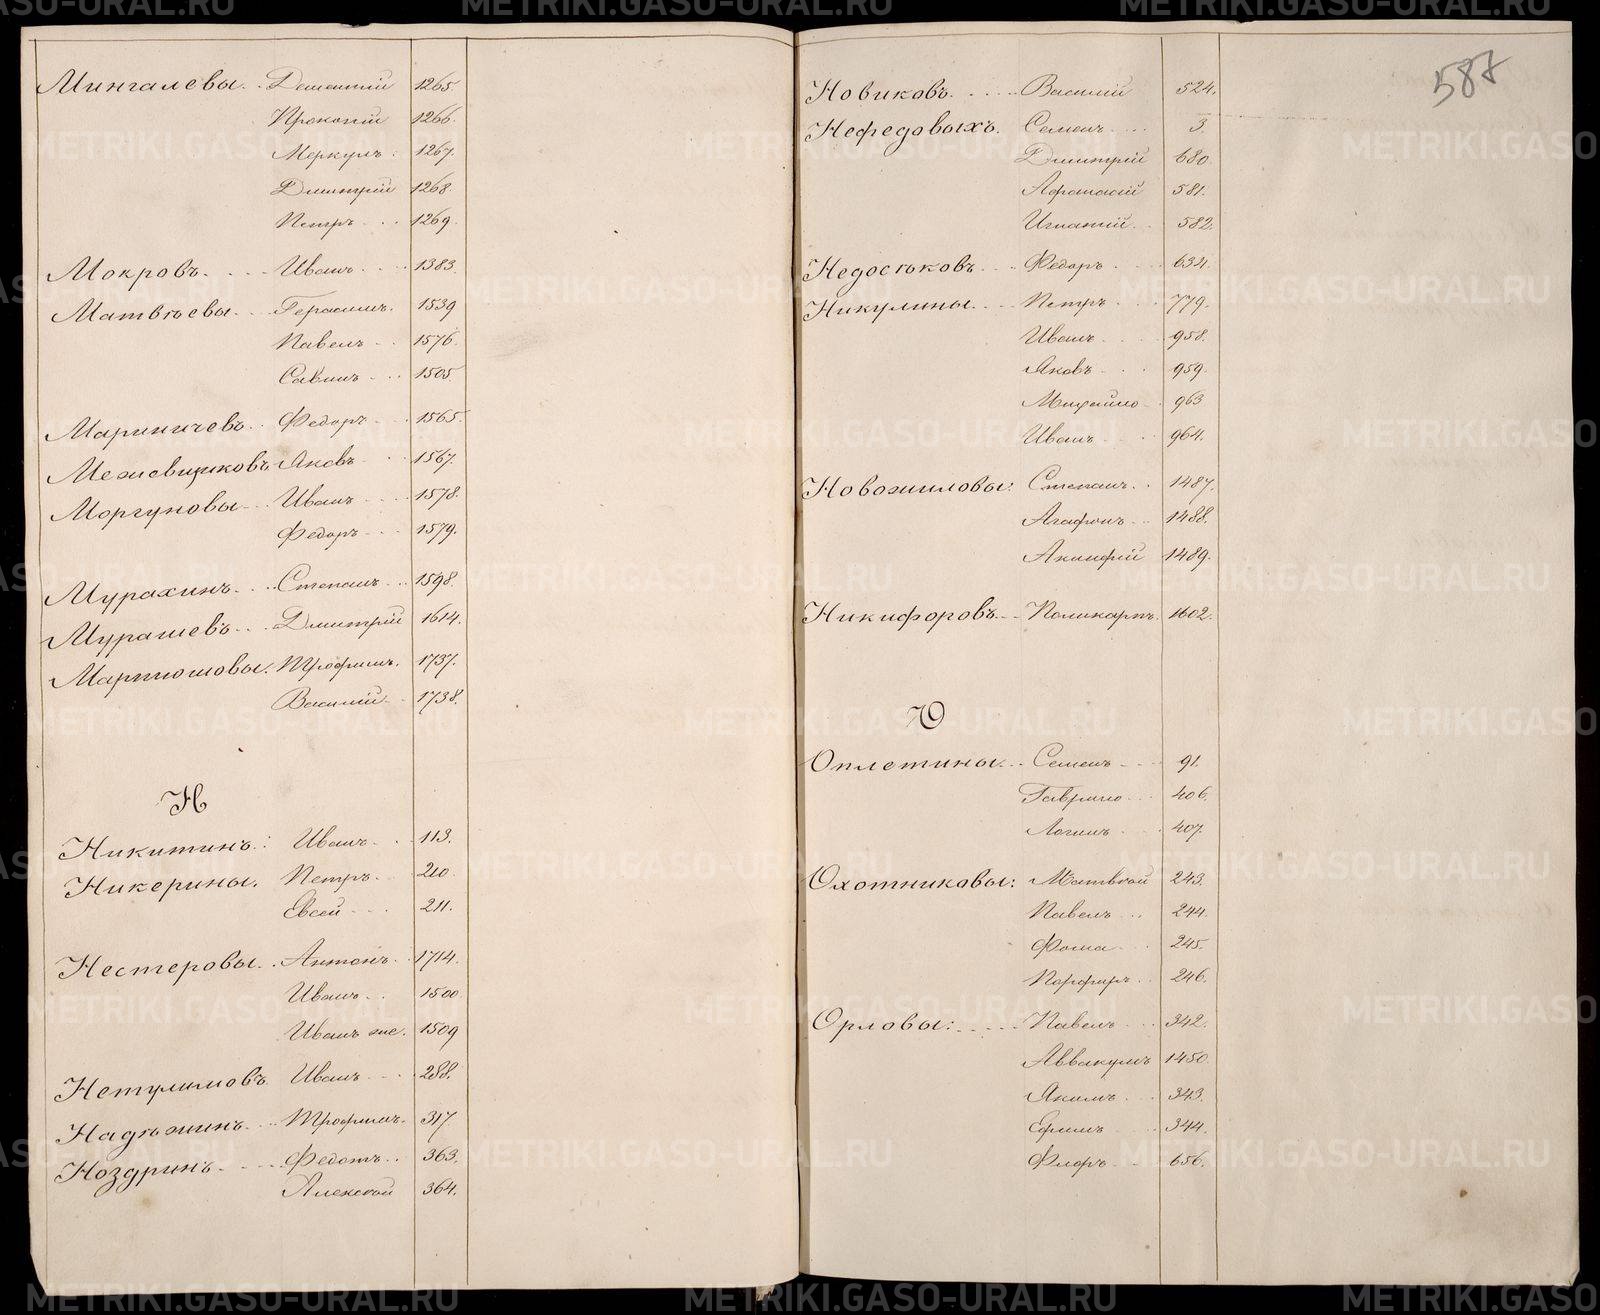 Мингалевы. Дементий 1265.
Прокопий 1266.
Меркулъ. 1267.
Дмитрій 1268.
Петръ 1269.
Мокровъ. Иванъ 1383.
Матвѣевы. Герасимъ. 1539
Павелъ 1576.
Савинъ 1505.
Мариничевъ. Федоръ 1565.
Межевщиковъ Яковъ 1567.
Моргуновы Иванъ 1578.
Федоръ 1579.
Мурахинъ. Степанъ 1598.
Мурашевъ Дмитрій 1614.
Мартюшовы. Трофимъ. 1737.
Василій 1738.
Н
Никитинъ: Иванъ 113.
Никерины. Петръ 210
Евсей 211.
Нестеровы. Антонъ 1714.
Иванъ 1500
Иванъ же. 1509
Нетулимовъ Иванъ 288.
Надѣжинъ Трофимъ. 317.
Ноздринъ Федотъ 363.
Алексѣй 364.
587
Новиковъ. Василий 524.
Нефедовыхъ. Семенъ 3.
Дмитрій 680.
Афанасій 581.
Игнатій 582.
Недосѣковъ Федоръ 634.
Никулины Петръ 779.
Иванъ 958.
Яковъ 959.
Михайло 963
Иванъ 964.
Новожиловы: Степанъ 1487.
Агафонъ 1488.
Акинфій 1489.
Никифоровъ. Поликарпъ. 1602.
О
Оплетины. Семенъ 91.
Гаврило 406.
Логинъ 407.
Охотниковы: Матвѣй 243.
Павелъ 244.
Фома 245.
Порфиръ 246.
Орловы: Павелъ 342.
Аввакумъ 1450.
Якимъ 343.
Ефимъ 344.
Флоръ 656.
METRIKI.GASO-URAL.RU